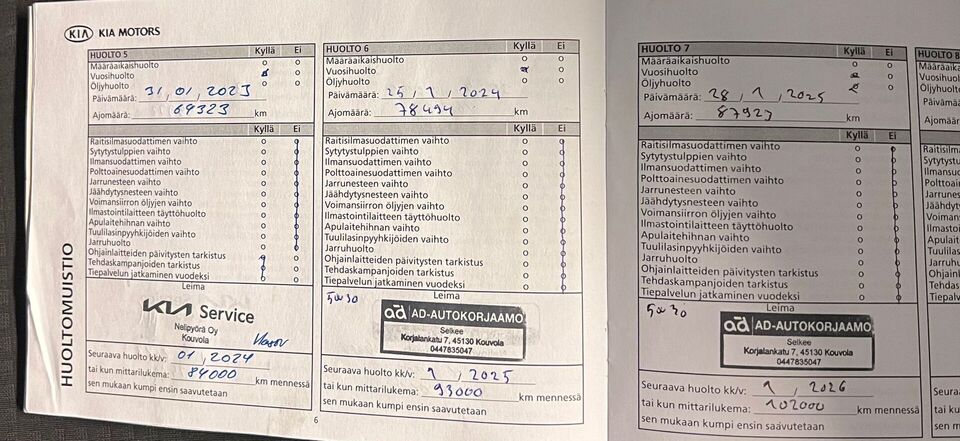 KIA KIA MOTORS
HUOLTOMUISTIO
HUOLTO 5 Kyllä Ei
Määräaikaishuolto o o
Vuosihuolto o
Öljyhuolto o o
Päivämäärä: 31,01,2023
Ajomäärä: 69323 km
Kyllä Ei
Raitisilmasuodattimen vaihto o o
Sytytystulppien vaihto o o
Ilmansuodattimen vaihto o o
Polttoainesuodattimen vaihto o o
Jarrunesteen vaihto o o
Jäähdytysnesteen vaihto o o
Voimansiirron öljyjen vaihto o o
Ilmastointilaitteen täyttöhuolto o o
Apulaitehihnan vaihto o o
Tuulilasinpyyhkijöiden vaihto o o
Jarruhuolto o o
Ohjainlaitteiden päivitysten tarkistus o o
Tehdaskampanjoiden tarkistus o o
Tiepalvelun jatkaminen vuodeksi o o
Leima
KIA Service
Nelipyörä Oy
Kouvola
Seuraava huolto kk/v: 01, 2024
tai kun mittarilukema: 84000 km mennessä
sen mukaan kumpi ensin saavutetaan
HUOLTO 6 Kyllä Ei
Määräaikaishuolto o o
Vuosihuolto o
Öljyhuolto o o
Päivämäärä: 25,1,2024
Ajomäärä: 78494 km
Kyllä Ei
Raitisilmasuodattimen vaihto o o
Sytytystulppien vaihto o o
Ilmansuodattimen vaihto o o
Polttoainesuodattimen vaihto o o
Jarrunesteen vaihto o o
Jäähdytysnesteen vaihto o o
Voimansiirron öljyjen vaihto o o
Ilmastointilaitteen täyttöhuolto o o
Apulaitehihnan vaihto o o
Tuulilasinpyyhkijöiden vaihto o o
Jarruhuolto o o
Ohjainlaitteiden päivitysten tarkistus o o
Tehdaskampanjoiden tarkistus o o
Tiepalvelun jatkaminen vuodeksi o o
5w30 Leima
ad AD-AUTOKORJAAMO
Selkee
Korjalankatu 7, 45130 Kouvola
0447835047
Seuraava huolto kk/v: 1, 2025
tai kun mittarilukema: 93000 km mennessä
sen mukaan kumpi ensin saavutetaan
6
HUOLTO 7 Kyllä Ei
Määräaikaishuolto o o
Vuosihuolto o
Öljyhuolto o
Päivämäärä: 28,1,2025
Ajomäärä: 87927 km
Kyllä Ei
Raitisilmasuodattimen vaihto o o
Sytytystulppien vaihto o o
Ilmansuodattimen vaihto o o
Polttoainesuodattimen vaihto o o
Jarrunesteen vaihto o o
Jäähdytysnesteen vaihto o o
Voimansiirron öljyjen vaihto o o
Ilmastointilaitteen täyttöhuolto o o
Apulaitehihnan vaihto o o
Tuulilasinpyyhkijöiden vaihto o o
Jarruhuolto o o
Ohjainlaitteiden päivitysten tarkistus o o
Tehdaskampanjoiden tarkistus o o
Tiepalvelun jatkaminen vuodeksi o o
5w30 Leima
ad AD-AUTOKORJAAMO
Selkee
Korjalankatu 7, 45130 Kouvola
0447835047
Seuraava huolto kk/v: 1, 2026
tai kun mittarilukema: 102000 km mennessä
sen mukaan kumpi ensin saavutetaan
HUOLTO 8